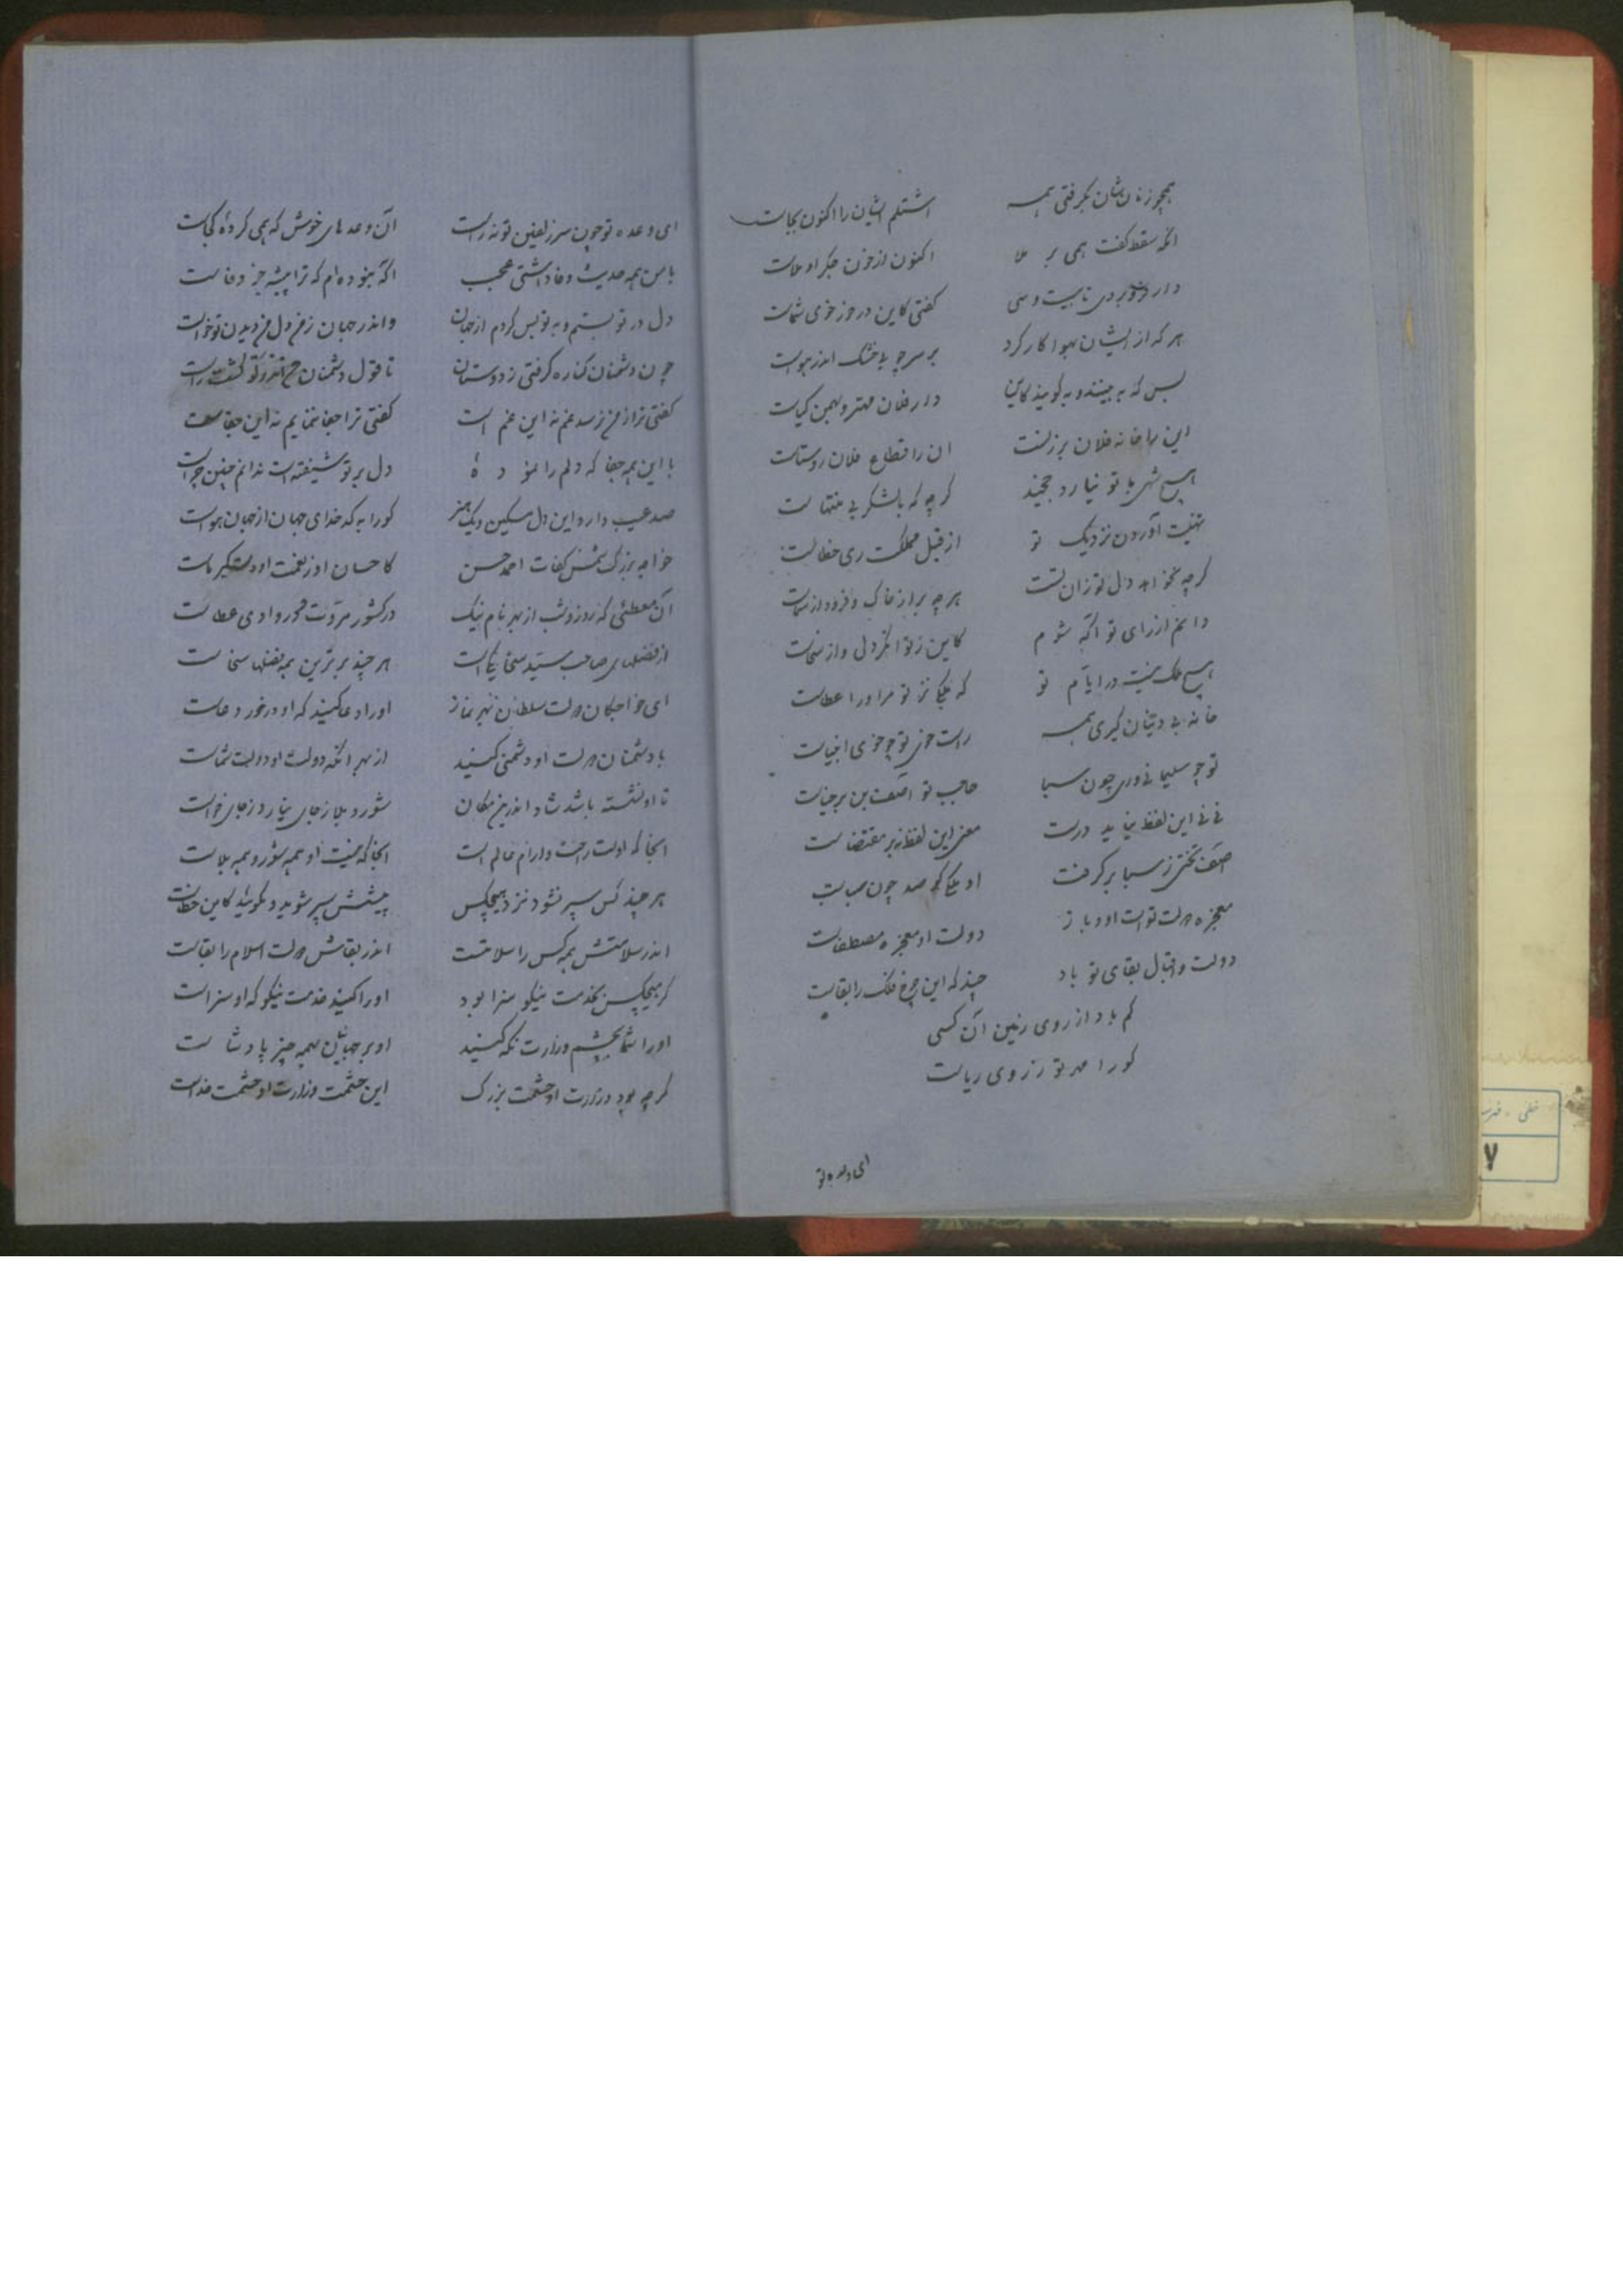 همچو زنان شان بگرفتی همه اشتلم ایشان را اکنون کجاست
انکه سقط گفت همی بر ملا اکنون از خون جگر او ملاست
دار فرو بردی تا بیست و سی گفتی کاین در خور خوی شماست
هر که از ایشان بهوا کار کرد بر سر چوب خشک اندر هواست
بس که به بینند و بگویند کاین دار فلان مهتر و بهمن کیاست
این را خانه فلان بر زنست ان را اقطاع فلان روستاست
هیچ شهی با تو نیارد چخید گرچه که با لشکر بی منتهاست
تهنیت آوردن نزدیک تو از قبل مملکت ری خطاست
گرچه نخواهد دل تو زان تست هرچه بر از خاک و فرود از سماست
دانم از رای تو اگه شوم کاین ز توانگر دل و از سخاست
هیچ ملک نیست در ایام تو که ملکی نز تو مر او را عطاست
خانه بی دینان گیری همه راست خوی تو چو خوی انبیاست
تو چو سلیمانی و ری چون سبا حاجب تو آصف بن برخیاست
نی نی این لفظ نیاید درست معنی این لفظ نه بر مقتضاست
آصف تختی ز سبا بر گرفت او ملکی کو صد چون سباست
معجزه دولت تو است او و باز دولت او معجزه مصطفاست
دولت و اقبال بقای تو باد چند که این چرخ فلک را بقاست
کم باد از روی زمین آن کسی
کو را مهر تو ز روی ریاست
ای وعده تو
ای وعده تو چون سر زلفین تو نه راست آن وعدهای خوش که همی کردهٔ کجاست
با من همه حدیث وفا داشتی عجب اگه نبوده‌ام که ترا پیشه جز وفاست
دل در تو بستم و به تو بس کردم از جهان واندر جهان ز من دل من دیدن تو خواست
چون دشمنان کناره گرفتی ز دوستان تا قول دشمنان من اندر تو گشت راست
گفتی ترا ز من نرسد غم نه این غم است گفتی ترا جفا ننمایم نه این جفاست
با این همه جفا که دلم را نمودهٔ دل بر تو شیفته است ندانم چنین چراست
صد عیب دارد این دل مسکین و یک هنر کو را به کدخدای جهان از جهان هواست
خواجه بزرگ شمس کفات احمد حسن کاحسان او ز نعمت او دست کبریاست
آن معطئی که روز و شب از بهر نام نیک در کشور مروت گردد وادی عطاست
از فضلهای صاحب سید سخا یکیست هر چند برترین همه فضلها سخاست
ای خواجگان دولت سلطان بهر نماز او را دعا کنید که او در خور دعاست
با دشمنان دولت او دشمنی کنید از بهر انکه دولت او دولت شماست
تا او نشسته باشد شاد اندرین مکان شور و بلا ز جای نیارد ز جای خواست
انجا که اوست راحت و آرام عالم است انجا که نیست او همه شور و همه بلاست
هر چند کس سپر نشود نزد هیچکس پیشش سپر شوید و مگوئید کاین خطاست
اندر سلامتش همه کس را سلامتست اندر بقاش دولت اسلام را بقاست
گر هیچکس بخدمت نیکو سزا بود او را کنید خدمت نیکو که او سزاست
او را شما بچشم وزارت نگه کنید او بر جهانیان بهمه چیز پادشاست
گرچه بود وزارت او حشمت بزرگ این حشمت وزارت او حشمت خداست
۷